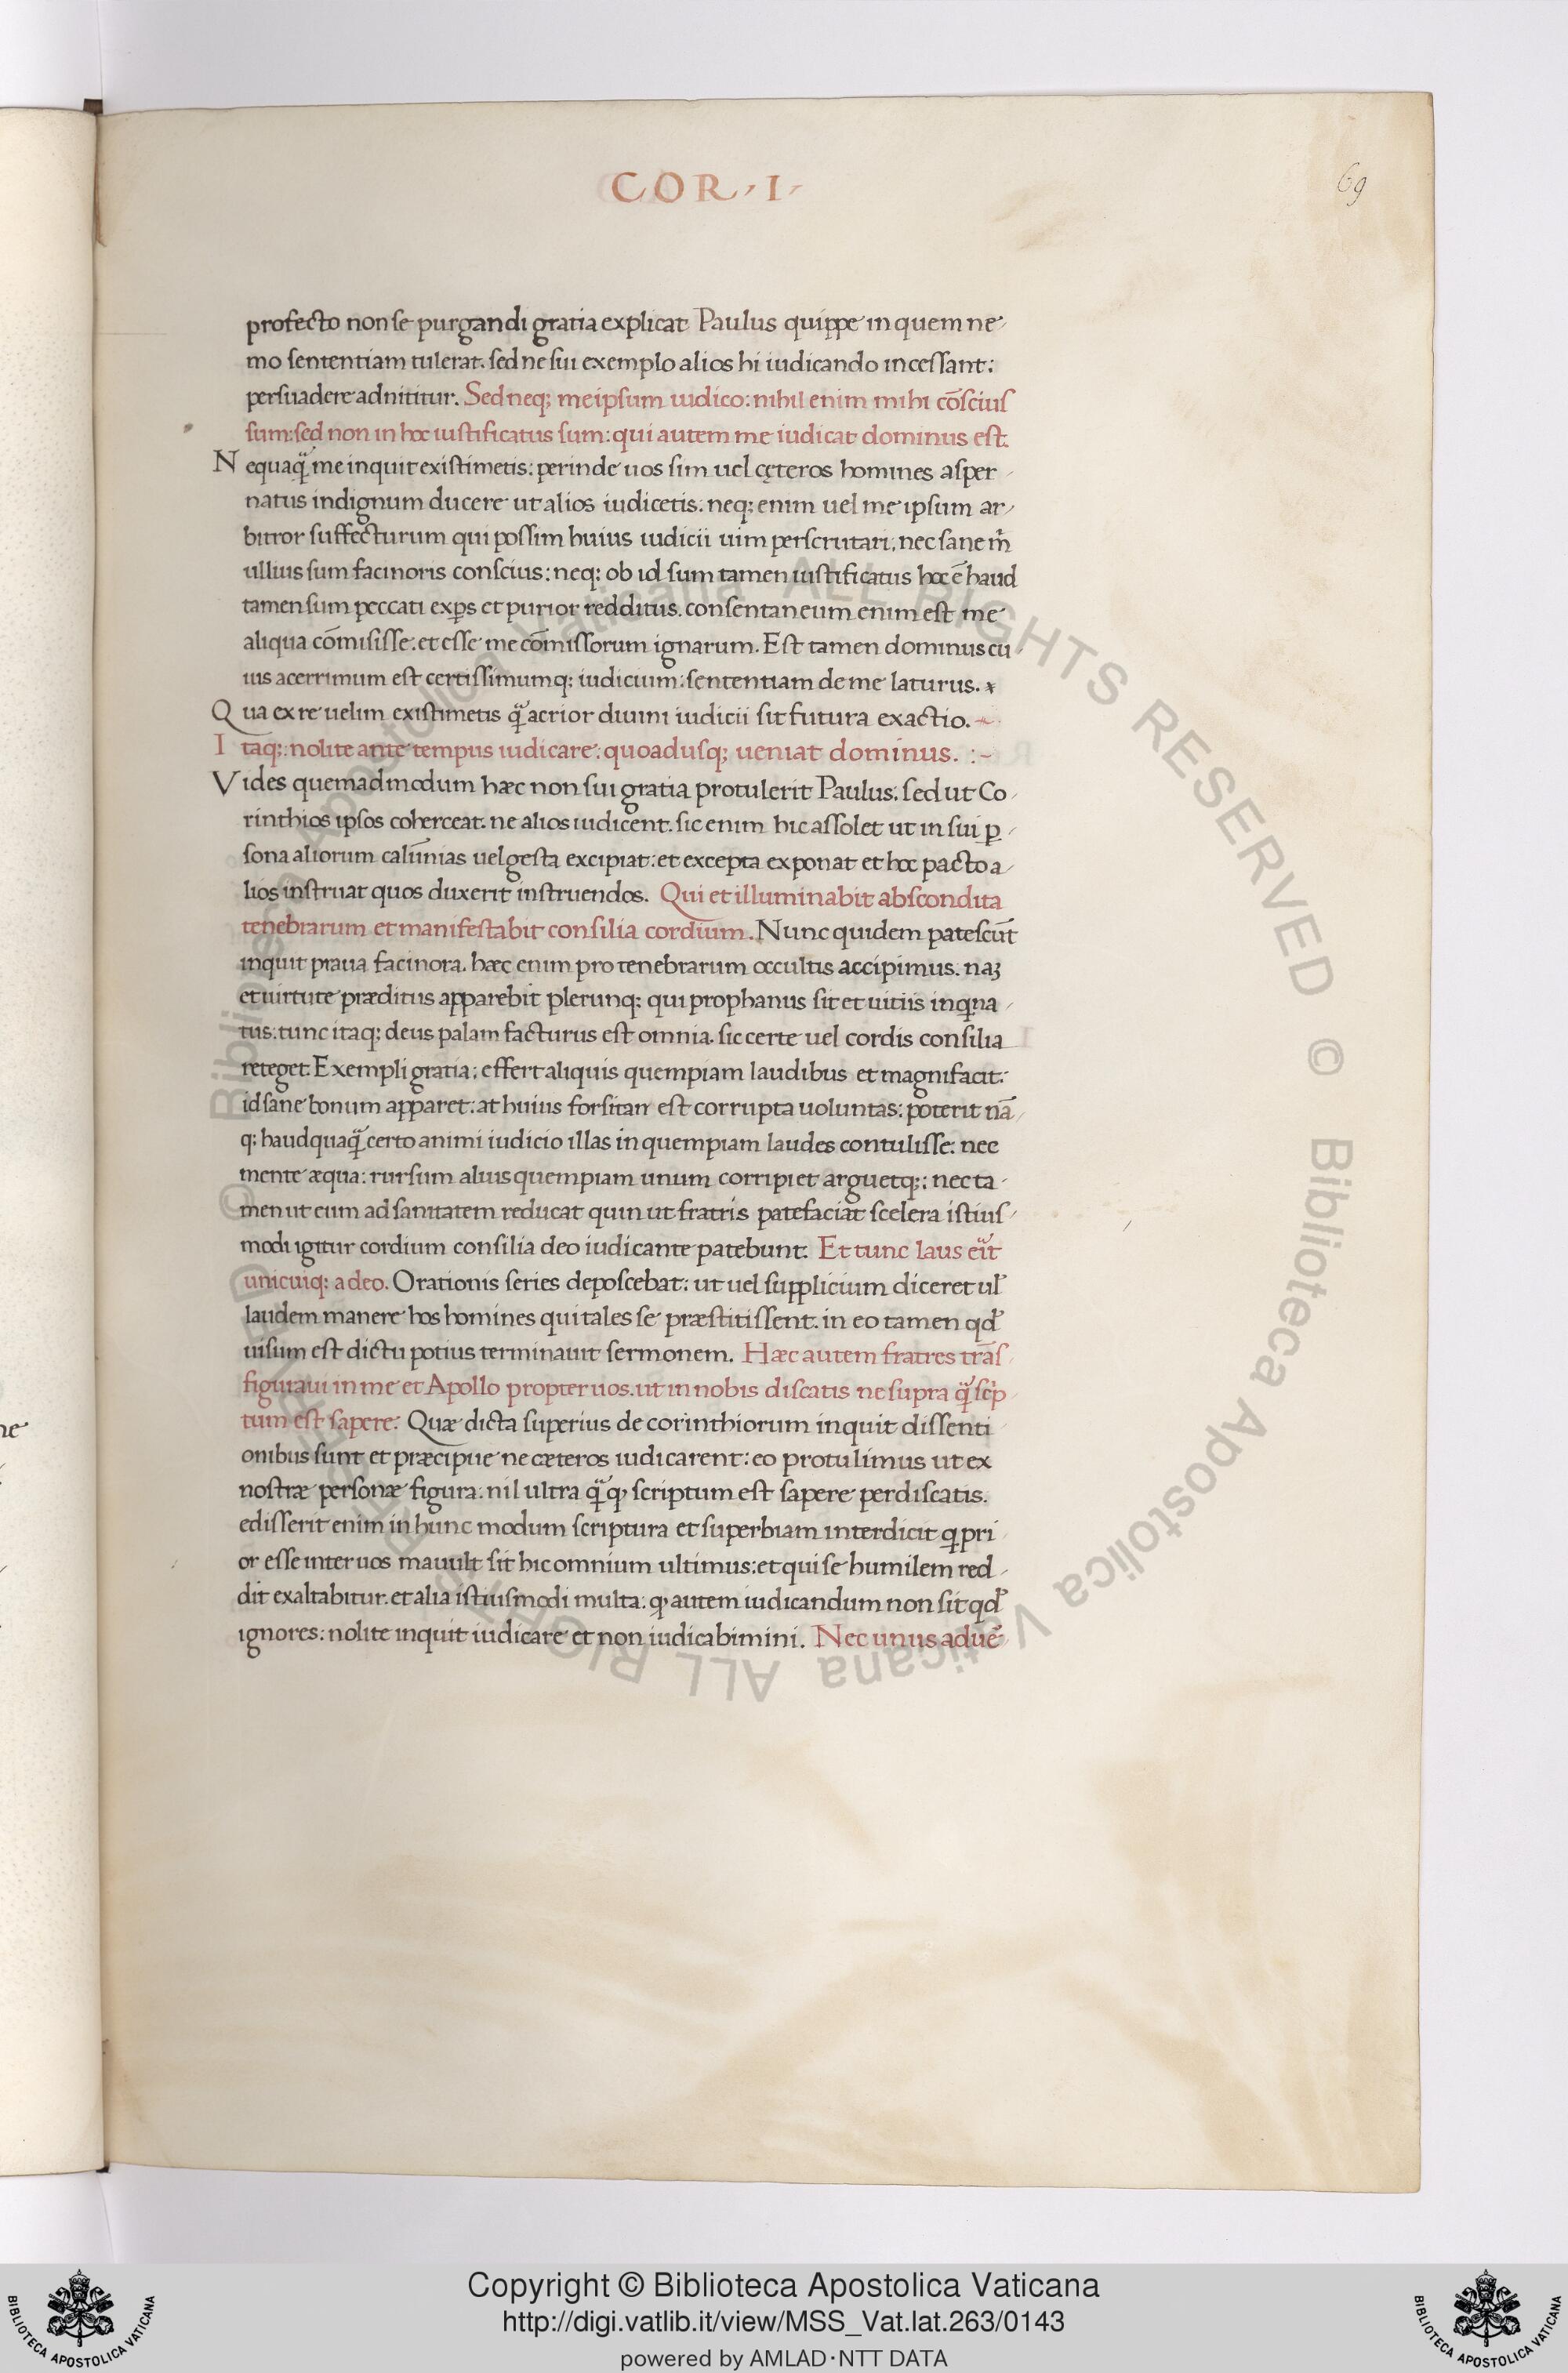 COR. I.
69
profecto non se purgandi gratia explicat Paulus quippe in quem ne
mo sententiam tulerat. sed ne sui exemplo alios hi iudicando incessant:
persuadere adnititur. Sed neq; me ipsum iudico: nihil enim mihi cōscius
sum: sed non in hoc iustificatus sum: qui autem me iudicat dominus est.
Nequaq̃ me inquit existimetis: perinde uos sim uel cęteros homines asper
natus indignum ducere ut alios iudicetis. neq; enim uel me ipsum ar
bitror suffecturum qui possim huius iudicii uim perscrutari. nec sane m̃
ullius sum facinoris conscius: neq; ob id sum tamen iustificatus hoc ē haud
tamen sum peccati exp̱s et purior redditus. consentaneum enim est me
aliqua cōmisisse. et esse me cōmissorum ignarum. Est tamen dominus cu
ius acerrimum est certissimumq; iudicium: sententiam de me laturus.
Qua ex re uelim existimetis q̃ acrior diuini iudicii sit futura exactio.
Itaq; nolite ante tempus iudicare: quoadusq; ueniat dominus. :-
Vides quemadmodum hæc non sui gratia protulerit Paulus: sed ut Co
rinthios ipsos coherceat. ne alios iudicent. sic enim hic assolet ut in sui ꝑ
sona aliorum calūnias uel gesta excipiat: et excepta exponat et hoc pacto a
lios instruat quos duxerit instruendos. Qui et illuminabit abscondita
tenebrarum et manifestabit consilia cordium. Nunc quidem patescūt
inquit praua facinora. hæc enim pro tenebrarum occultis accipimus. naꝫ
et uirtute præditus apparebit plerunq; qui prophanus sit et uitiis inqͥna
tus. tunc itaq; deus palam facturus est omnia. sic certe uel cordis consilia
reteget. Exempli gratia: effert aliquis quempiam laudibus et magnifacit:
id sane bonum apparet: at huius forsitan est corrupta uoluntas: poterit nā
q; haudquaq̃ certo animi iudicio illas in quempiam laudes contulisse: nec
mente æqua: rursum alius quempiam unum corripiet arguetq;: nec ta
men ut eum ad sanitatem reducat quin ut fratris patefaciat scelera istius
modi igitur cordium consilia deo iudicante patebunt. Et tunc laus eĩt
unicuiq; a deo. Orationis series deposcebat: ut uel supplicium diceret ul̃
laudem manere hos homines qui tales se præstitissent. in eo tamen qd̃
uisum est dictu potius terminauit sermonem. Hæc autem fratres trās
figuraui in me et Apollo propter uos. ut in nobis discatis ne supra q̃ scͥp
tum est sapere: Quæ dicta superius de corinthiorum inquit dissenti
onibus sunt et præcipue ne cæteros iudicarent: eo protulimus ut ex
nostræ personæ figura. nil ultra q̃ ꝙ scriptum est sapere perdiscatis.
edisserit enim in hunc modum scriptura et superbiam interdicit qͥ pri
or esse inter uos mauult sit hic omnium ultimus: et qui se humilem red
dit exaltabitur. et alia istiusmodi multa. ꝙ autem iudicandum non sit qd̃
ignores: nolite inquit iudicare et non iudicabimini. Nec unus aduē
© Biblioteca Apostolica Vaticana ALL RIGHTS RESERVED © Biblioteca Apostolica Vaticana ALL RIGHTS RESERVED
Copyright © Biblioteca Apostolica Vaticana
http://digi.vatlib.it/view/MSS_Vat.lat.263/0143
powered by AMLAD·NTT DATA
BIBLIOTECA APOSTOLICA VATICANA
BIBLIOTECA APOSTOLICA VATICANA